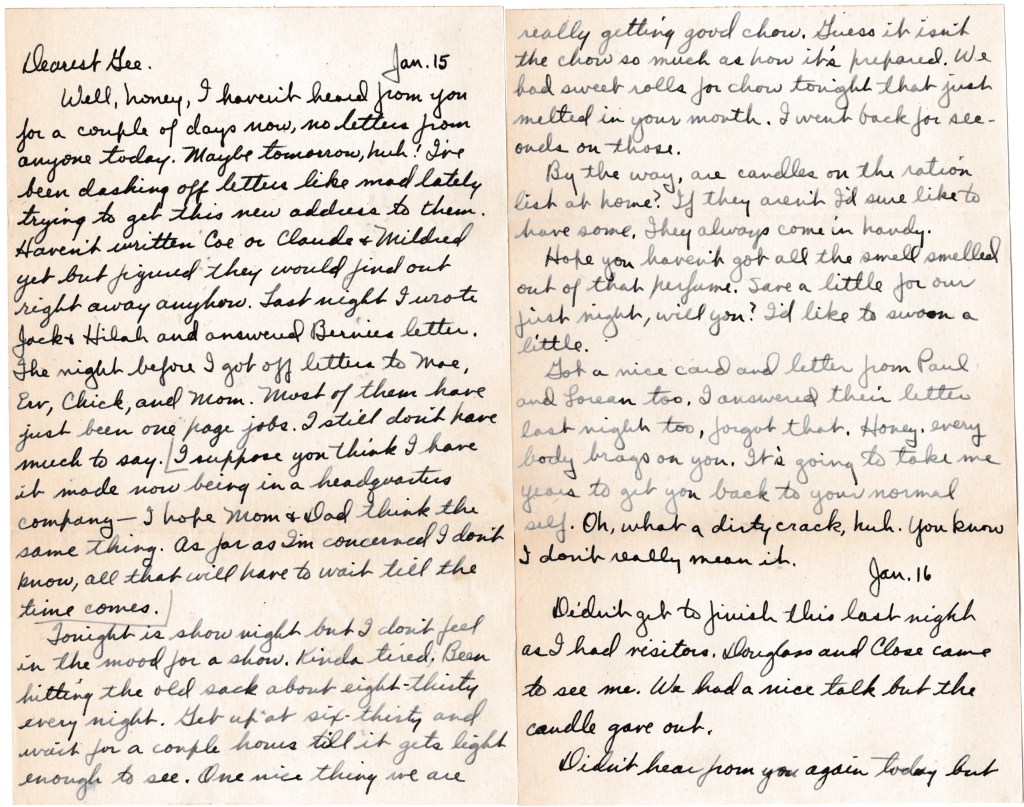 Dearest Gee. Jan. 15
Well, honey, I haven't heard from you
for a couple of days now, no letters from
anyone today. Maybe tomorrow, huh! I've
been dashing off letters like mad lately
trying to get this new address to them.
Haven't written Coe or Claude & Mildred
yet but figured they would find out
right away anyhow. Last night I wrote
Jack & Hilah and answered Bernies letter.
The night before I got off letters to Mae,
Erv, Chick, and Mom. Most of them have
just been one page jobs. I still don't have
much to say. [I suppose you think I have
it made now being in a headquarters
company — I hope Mom & Dad think the
same thing. As far as I'm concerned I don't
know, all that will have to wait till the
time comes.]
Tonight is show night but I don't feel
in the mood for a show. Kinda tired. Been
hitting the old sack about eight-thirty
every night. Get up at six-thirty and
wait for a couple hours till it gets light
enough to see. One nice thing we are
really getting good chow. Guess it isn't
the chow so much as how it's prepared. We
had sweet rolls for chow tonight that just
melted in your mouth. I went back for sec-
onds on those.
By the way, are candles on the ration
list at home? If they aren't I'd sure like to
have some. They always come in handy.
Hope you haven't got all the smell smelled
out of that perfume. Save a little for our
first night, will you? I'd like to swoon a
little.
Got a nice card and letter from Paul
and Lorean too. I answered their letter
last night too, forgot that. Honey, every
body brags on you. It's going to take me
years to get you back to your normal
self. Oh, what a dirty crack, huh. You know
I don't really mean it.
Jan. 16
Didn't get to finish this last night
as I had visitors. Douglass and Close came
to see me. We had a nice talk but the
candle gave out.
Didn't hear from you again today but